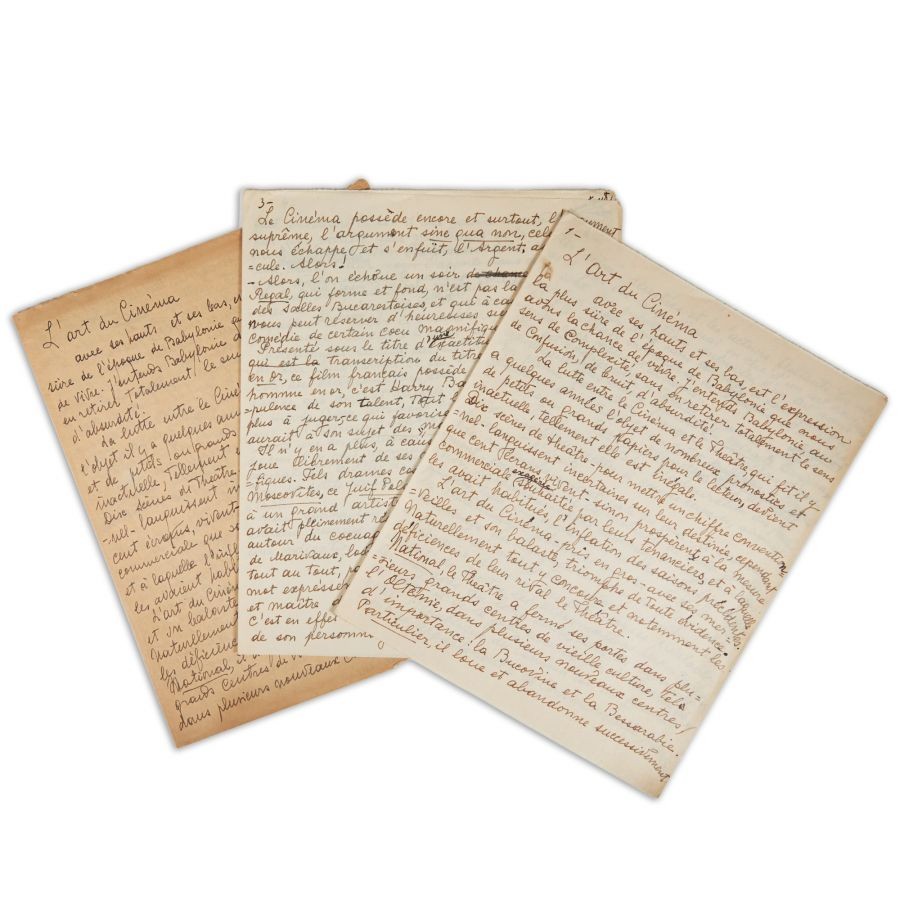 L'art du Cinéma
avec ses hauts et ses bas, es
sive de l'époque de Babylonie q
de vivre. J'entends Babylonie
en retirer totalement le sen
d'absurdité!
La lutte entre le Ciné
l'objet il y a quelques ann
et de petits ou grands
inactuelle, tellement
Dix scènes de Théâtre
-nel- languissent
cent écrans, vivent
commerciale que
et à laquelle
les avaient hab
L'art du Ciném
et son balast
naturellement
les déficien
National,
grands centres de v
dans plusieurs nouveaux C
3-
Le Cinéma possède encore et surtout, l'
suprême, l'argument sine qua non, cel
nous échappe et s'enfuit, l'Argent, a
=cule. Alors!
-Alors, l'on échoue un soir de chance
Regal, qui forme et fond, n'est pas la
des salles Bucarestoises, et qui à ca
nous peut réserver d'heureuses su
comédie de certain cocu magnifiq
Présenté sous le titre d'inexactitude
qui est la transcription du titre
en or, ce film français possède
homme en or, c'est Harry Ba
pulence de son talent, Tout
plus à jugeroce qui favoris
aurait à son sujet des
Il n'y en a plus, à caus
joue librement de ses
=tiques. Tels drames co
Moscovites, ce Juif Pol
à un grand artist
avait pleinement ré
autour du cocuag
de Marivaux, lou
tout au tout, po
mot expresser
et maître
c'est en effe
de son personn
1-
L'Art du Cinéma
avec ses hauts, et ses bas, est l'expression
la plus sûre de l'époque de Babylonie que nous
avons la chance de vivre. J'entends Babylonie, au
sens de Complexité, sans en retirer totalement le sens
de Confusion, de bruit et d'absurdité!
La lutte entre le Cinéma et le Théâtre, qui fit il y
a quelques années l'objet de nombreux pronostics et
de petits ou grands papiers pour le lecteur, devient
inactuelle, tellement elle est inégale.
Dix scènes de théâtre- pour mettre un chiffre convention
=nel- languissent incertaines sur leur destinée cependant
que cent écrans, vivent- sinon prospèrent à la mesure
commerciale souhaitée par leurs tenanciers, et à laquelle
les avait habitués l'inflation des saisons précédentes.
L'art du Cinéma- pris en gros- avec sa mer=
=veille, et son balaste, triomphe de toute évidence.
Naturellement tout y concoure et notamment les
déficiences de leur rival le Théâtre.
National, le Théâtre a fermé ses portes dans plu=
=sieurs grands centres de vieille culture, tels
l'Olténie, dans plusieurs nouveaux centres
d'importance, la Bucovine et la Bessarabie.
Particulier, il loue et abandonne successivement